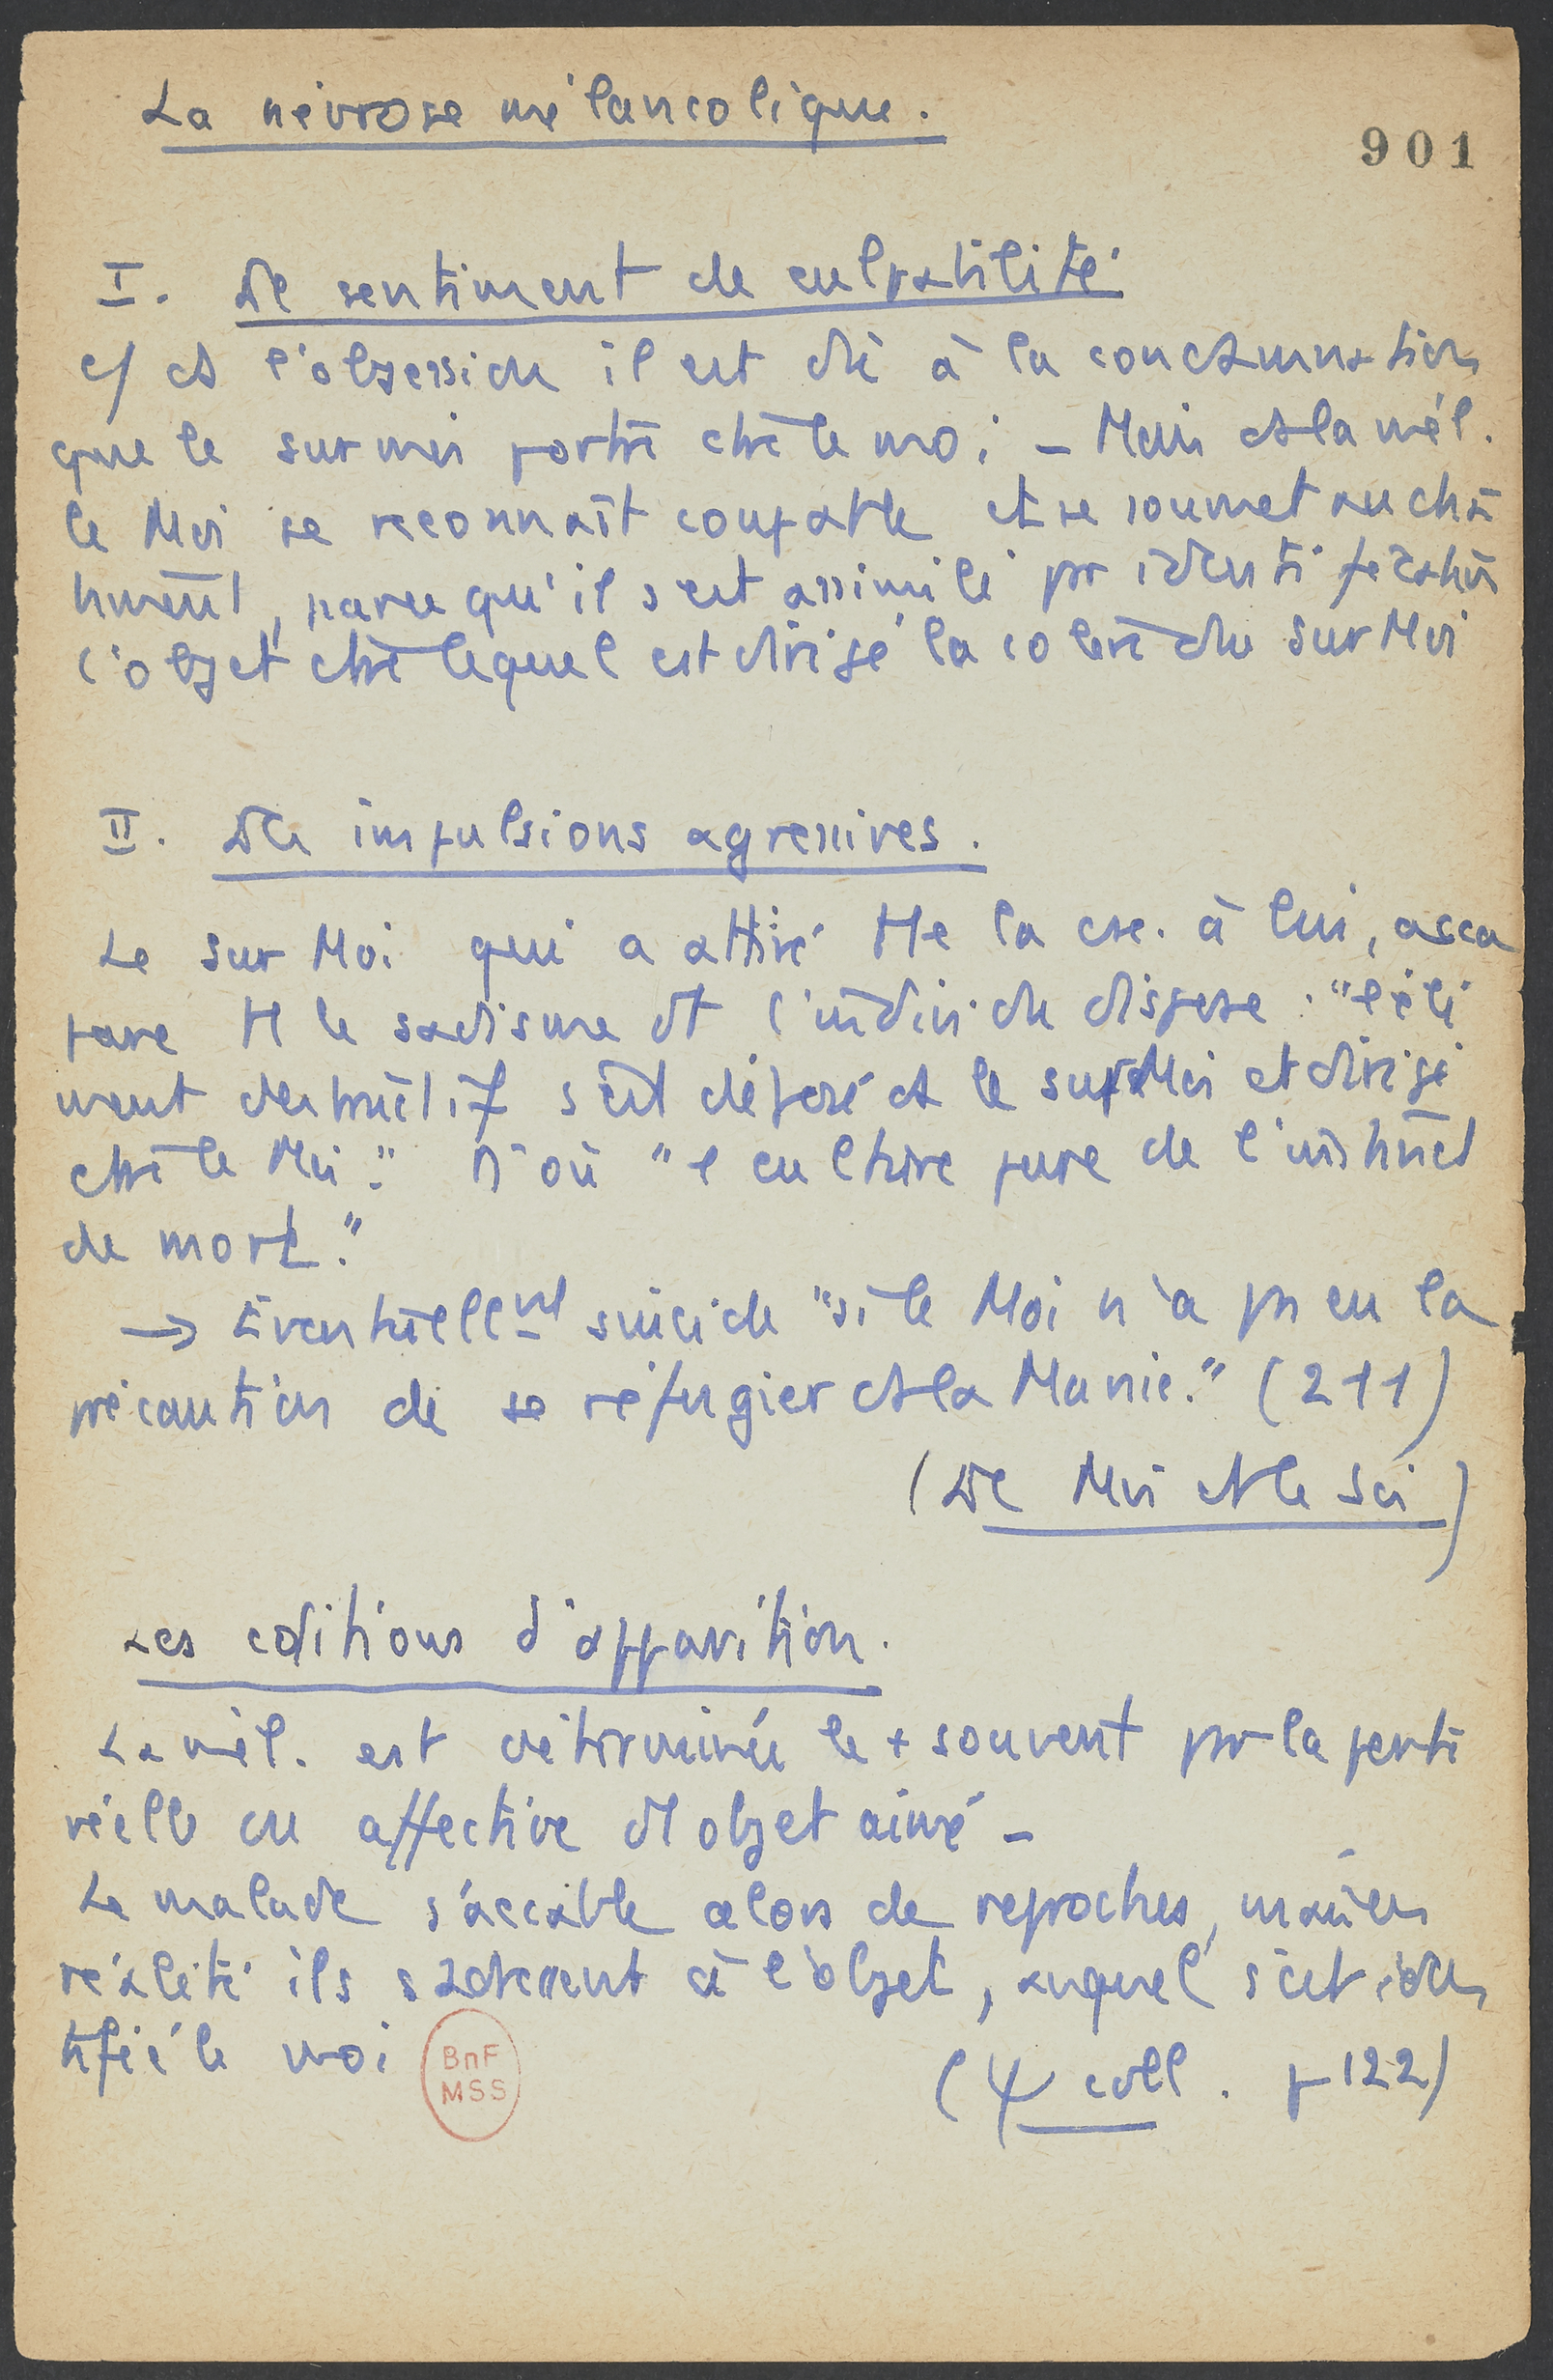 La névrose mélancolique.
901
I. Le sentiment de culpabilité
c/ ds l'obsession il est dû à la condamnation
que le surmoi porte ctre le moi – Mais ds la mél.
le Moi se reconnaît coupable et se soumet au châ
timent, parce qu'il s'est assimilé pr identification
l'objet ctre lequel est dirigé la colère du SurMoi
II. Les impulsions agressives.
Le Sur Moi qui a attiré tte la csc. à lui, acca
pare tt le sadisme dt l'individu dispose : "l'élé
ment destructif s'est déposé ds le surMoi et dirigé
ctre le Moi." D'où "l culture pure de l'instinct
de mort."
→ Éventuellemt suicide "si le Moi n'a ps eu la
précaution de se réfugier ds la Manie." (211)
(Le Moi et le Soi)
Les cditions d'apparition.
La mél. est déterminée le + souvent pr la perte
réelle ou affective d'l objet aimé –
Le malade s'accable alors de reproches, mais en
réalité ils s'adressent à l'objet, auquel s'est iden
tifié le moi
BnF
MSS
(Ψ coll. p 122)